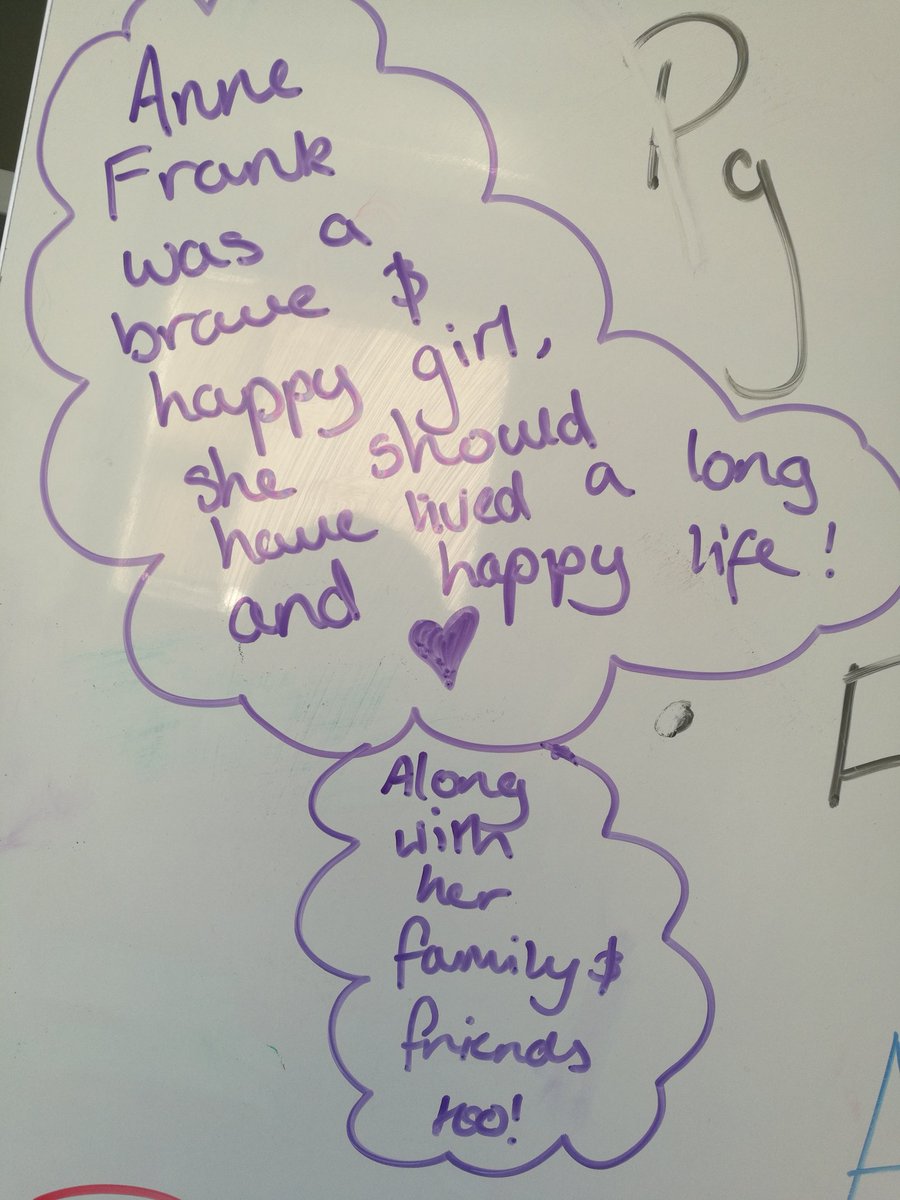 Anne
Frank
was a
brave $
happy girl,
she should
have lived a long
and happy life!
Along
with
her
family $
friends
too!
Pg